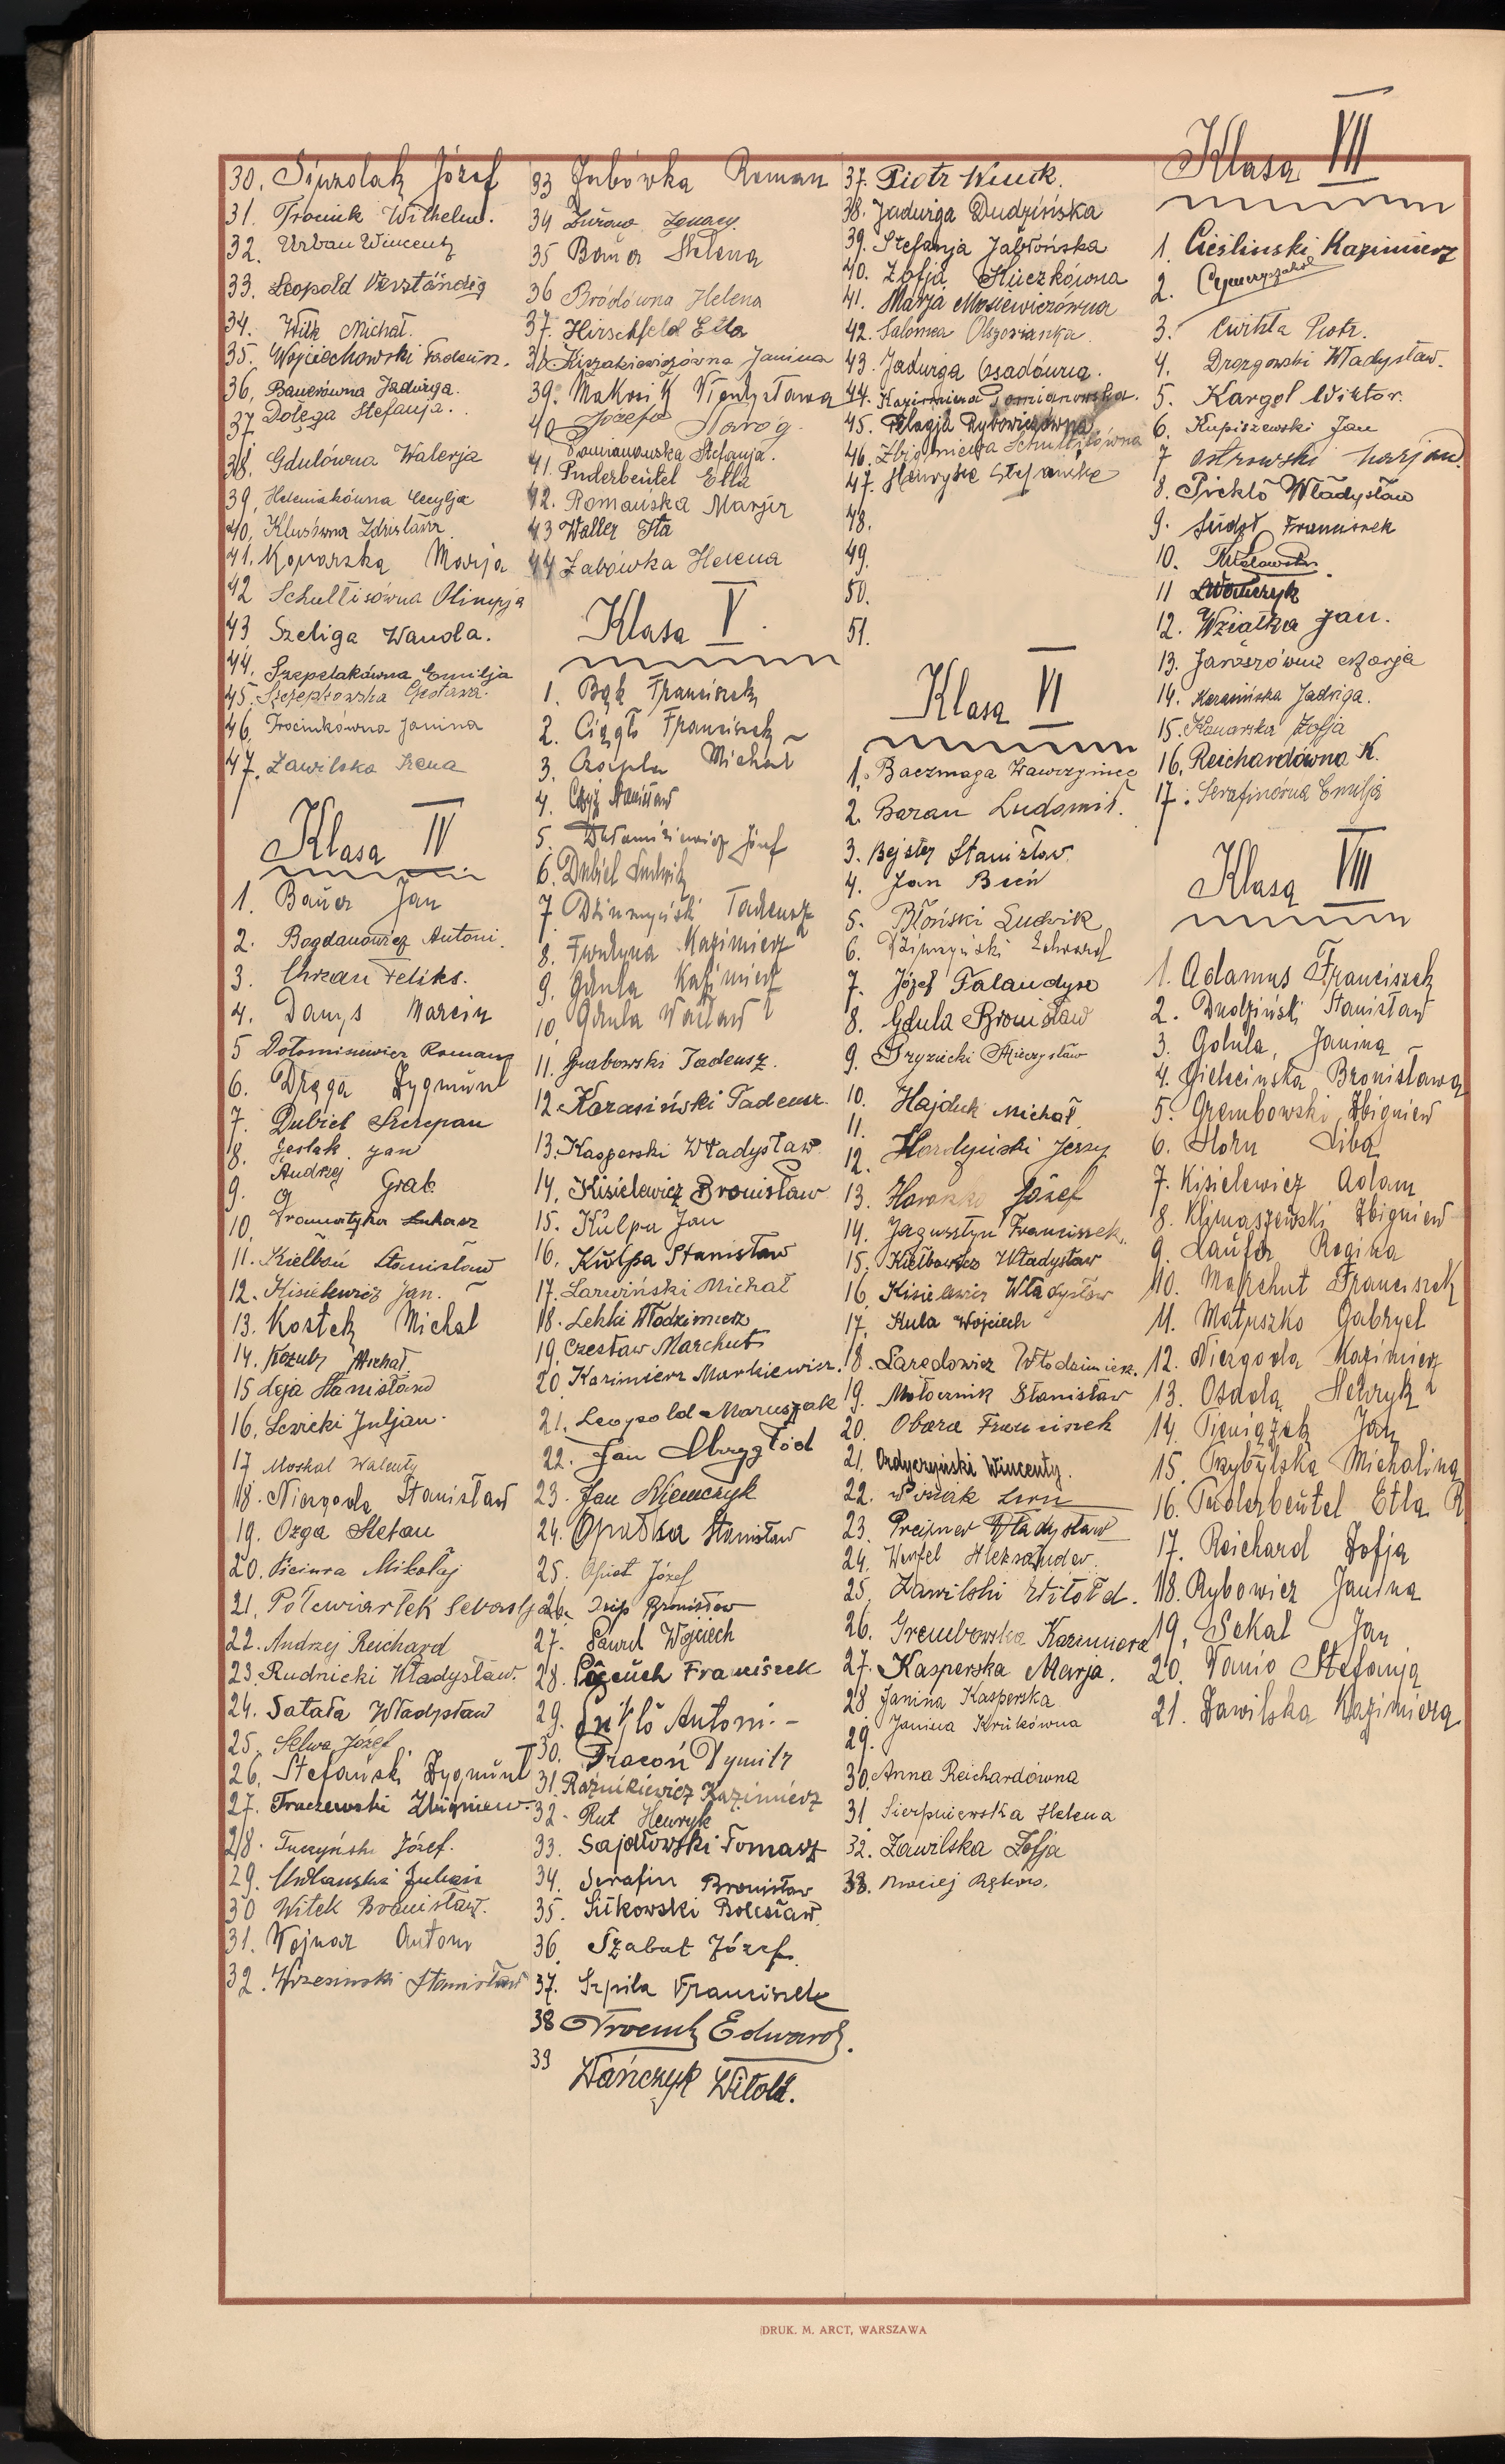 30. Sipzolak Józef
31. Trocink Wilhelm.
32. Urban Wincenty
33. Leopold Verständig
34. Wilk Michał.
35. Wojciechowski Tadeusz.
36. Bauerówna Jadwiga.
37. Dołęga Stefanja.
38. Gdulówna Walerja
39. Heleniakówna Cecylja
40. Klusówna Zdzisława
41. Konarska Marja
42 Schultisówna Olimpja
43 Szeliga Wanda.
44. Szczepelakówna Emilja
45. Szczepkowska
46. Trocinkówna Janina
47. Zawilska Irena
Klasa IV
1. Baüer Jan
2. Bogdanowicz Antoni.
3. Chrzan Feliks.
4. Danys Marcin
5 Dołominiewicz Romans
6. Drąga Zygmünt
7. Dubiel Szczepan
8. Gesłak Jan
9. Andrzej Grab
10. Gramatyka Łukasz
11. Kiełboń Stanisław
12. Kisielewicz Jan.
13. Kostek Michał
14. Kozub Michał.
15 Leja Stanisław
16. Lewicki Juljan.
17 Moskal Walenty
18. Niezgoda Stanisław
19. Ozga Stefan
20. Mikołaj
21. Półćwiartek Sebastja
22. Andrzej Reichard
23. Rudnicki Władysław.
24. Satała Władysław
25. Selwa Józef
26. Stefański Zygmünt
27. Traczewski Zbigniew.
28. Tuczyński Józef.
29. Juljan
30 Witek Bronisław.
31. Wojnar Antoni
32. Wrzesinski Stanisław
33 Żubówka Roman
34 Żuraw Ignacy.
35 Baüer Helena
36 Bródówna Helena
37. Hirschfeld Etla
38 Kiszakiewiczówna Janina
39. Makosik Władysława
40 Józefa Naróg.
Pomianowska Stefanja.
41. Puderbeütel Etla
42. Romańska Marja
43 Waller Ita
44 Żabówka Helena
Klasa V.
1. Bąk Franciszek
2. Ciągło Franciszek
3. Czapla Michał
4. Czyż Stanisław
5. Dołominiewicz Józef
6. Dubiel Ludwik
7 Dżimzyński Tadeusz
8. Furtyna Kazimierz
9. Gdula Kazimierz
10. Gdula Wacław
11. Grabowski Tadeusz.
12 Karasiński Tadeusz.
13. Kasperski Władysław
14. Kisielewicz Bronisław
15. Külpa Jan
16. Külpa Stanisław
17. Larwiński Michał
18. Lekki Włodzimierz
19. Czesław Marchut
20 Kazimierz Markiewicz.
21. Leopold Maruszak
22. Jan Obrzygłód
23. Jan Niemczyk
24. Opałka Stanisław
25. Opiat Józef
26. Osip Bronisław
27. Paweł Wojciech
28. Franciszek
29. Antoni.
30. Pracoń Dymitr
31. Raźnikiewicz Kazimierz
32. Rut Henryk
33. Sajdłowski Tomasz
34. Serafin Bronisław
35. Sitkowski Bolesław.
36. Szabat Józef.
37. Szpila Franciszek
38 Trocink Edward.
39 Wańczyk Witold.
37. Piotr Wnuk.
38. Jadwiga Dudzińska
39. Stefanja Jabłońska
40. Zofja Kluczkówna
41. Marja Mosiewiczówna
42. Salomea Olszowianka
43. Jadwiga Osadówna.
44. Kazimiera Pomianowska.
45. Pelagja Rybowiczówna
46. Zbigniewa Schultisówna
47. Henryka Stefańska
48.
49.
50.
51.
Klasa VI
1. Baczmaga Wawrzyniec
2. Baran Ludomił.
3. Bejster Stanisław.
4. Jan Bień
5. Błoński Ludwik
6. Dżimzyński Edward
7. Józef Falandysz
8. Gdula Bronisław
9. Gryzicki Mieczysław
10. Hajduk Michał
11.
12. Hordyński Jerzy
13. Józef
14. Jagusztyn Franciszek.
15. Kiełbowicz Władysław
16. Kisielewicz Władysław
17. Kula Wojciech
18. Laredowicz Włodzimierz.
19. Mołoczník Stanisław
20. Obara Franciszek
21. Ordyczyński Wincenty.
22. Leon
23. Preisner Władysław
24. Wenfel Aleksander.
25. Zawilski Witołd.
26. Grembowska Kazimiera
27. Kasperska Marja.
28 Janina Kasperska
29. Janina Krükówna
30. Anna Reichardówna
31. Sierpniewska Helena
32. Zawilska Zofja
33. Maciej
Klasa VII
1. Cieśliński Kazimierz
2.
3. Ćwikła Piotr.
4. Drozgowski Władysław.
5. Kargol Wiktor.
6. Kupiszewski Jan
7 Ostrowski Marjan.
8. Piekło Władysław
9. Südoł Franciszek
10.
11
12. Wziątka Jan.
13. Januszówna Marja
14. Karasińska Jadwiga.
15. Konarska Zofja
16. Reichardówna K.
17. Serafinówna Emilja
Klasa VIII
1. Adamus Franciszek
2. Dudziński Stanisław
3. Gdula, Janina
4. Gielecinska Bronisława
5. Grembowski Zbigniew
6. Horn Liba
7. Kisielewicz Adam
8. Klimaszewski Zbigniew
9. Laüfer Regina
10. Marchut Franciszek
11. Matuszko Gabryel
12. Niezgoda Kazimierz
13. Osada Henryk
14. Pieniążek Jan
15. Przybylska Michalina
16. Puderbeütel Etla R
17. Reichard Zofja
18. Rybowicz Janina
19. Sekal Jan
20. Wanio Stefanja
21. Zawilska Kazimiera
DRUK. M. ARCT, WARSZAWA